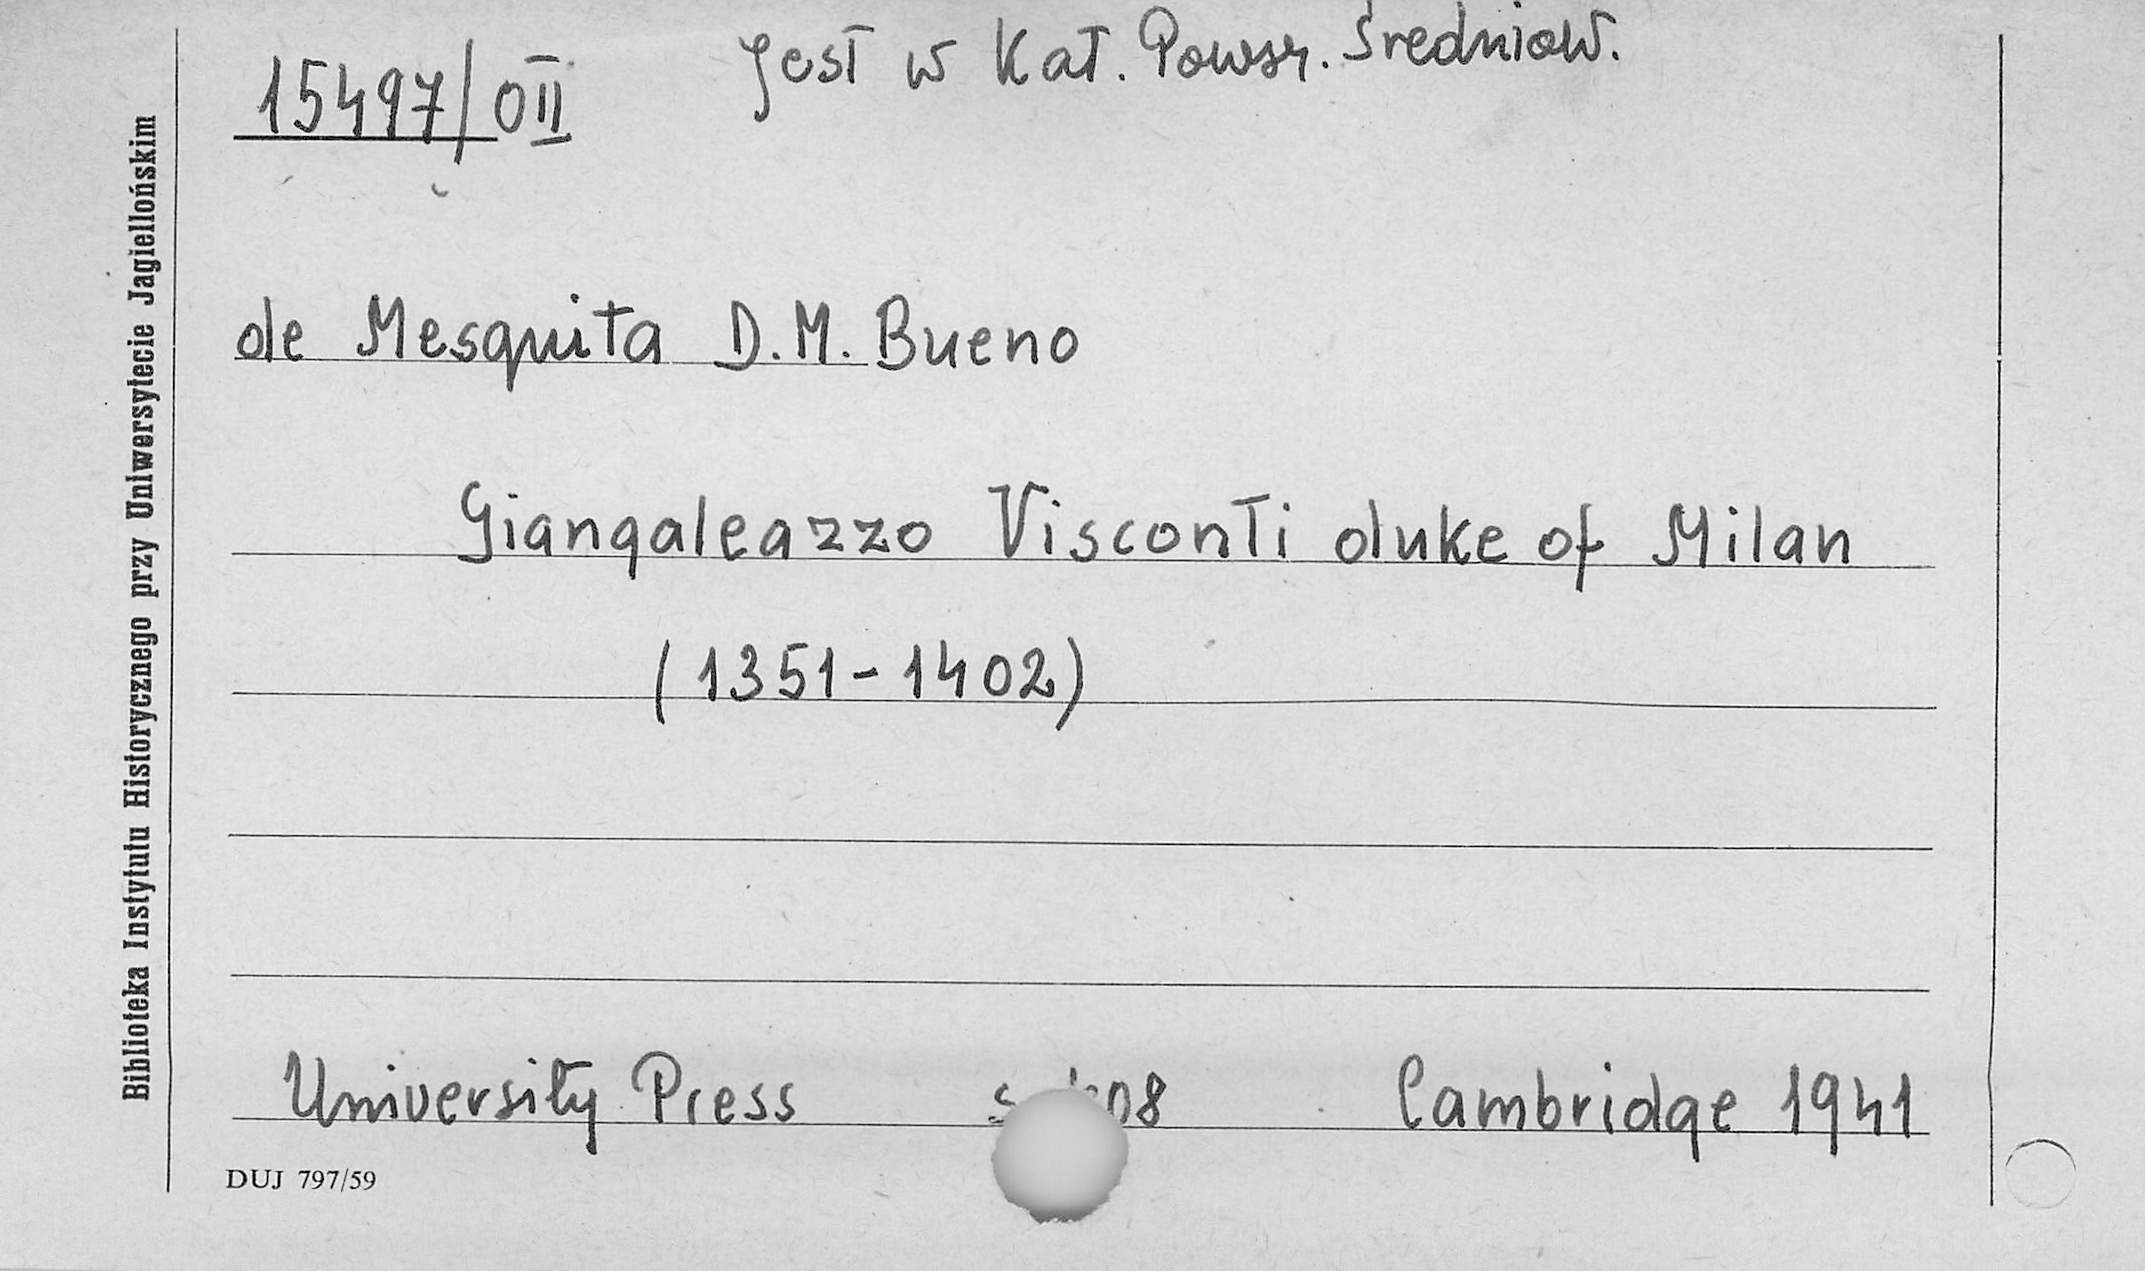 15497/OII
Jest w Kat. Powsz. Średniow.
de Mesquita D.M. Bueno
Giangaleazzo Visconti duke of Milan
(1351-1402)
University Press s 08 Cambridge 1941
DUJ 797/59
Biblioteka Instytutu Historycznego przy Uniwersytecie Jagiellońskim